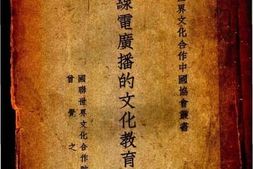 界文化合作中國協會叢書
線電廣播的文化教育
國聯世界文化合作
曾覺之